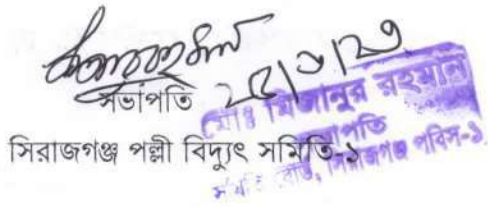 সভাপতি
সিরাজগঞ্জ পল্লী বিদ্যুৎ সমিতি-১
মোঃ মিজানুর রহমান
সভাপতি
সমিতি বোর্ড, সিরাজগঞ্জ পবিস-১